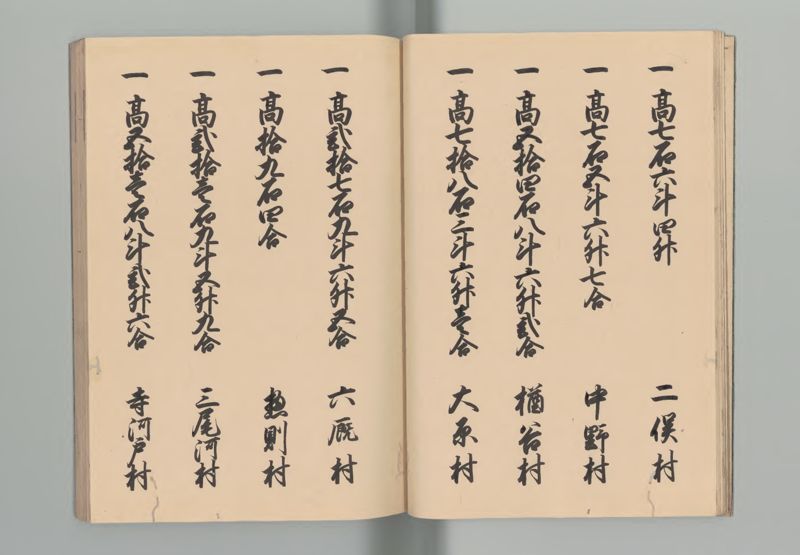 一 高七石六斗四升 二俣村
一 高七石五斗六升七合 中野村
一 高五拾四石八斗六升弐合 楢谷村
一 高七拾八石三斗六升壱合 大原村
一 高弐拾七石九斗六升五合 六厩村
一 高拾九石四合 惣則村
一 高弐拾壱石九斗五升九合 三尾河村
一 高五拾壱石八斗弐升六合 寺河戸村